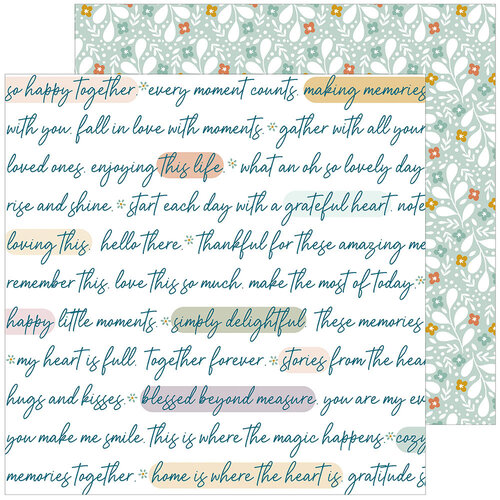 so happy together. *every moment counts. making memories
with you. fall in love with moments. *gather with all your
loved ones. enjoying this life. * what an oh so lovely day
rise and shine. *start each day with a grateful heart. note
loving this. hello there. *thankful for these amazing me
remember this. love this so much. make the most of today.*
happy little moments. *simply delightful. These memories
*my heart is full. Together forever. *stories from the hear
hugs and kisses. *blessed beyond measure. you are my ev
you make me smile. this is where the magic happens *cozy
memories together. *home is where the heart is. gratitude s